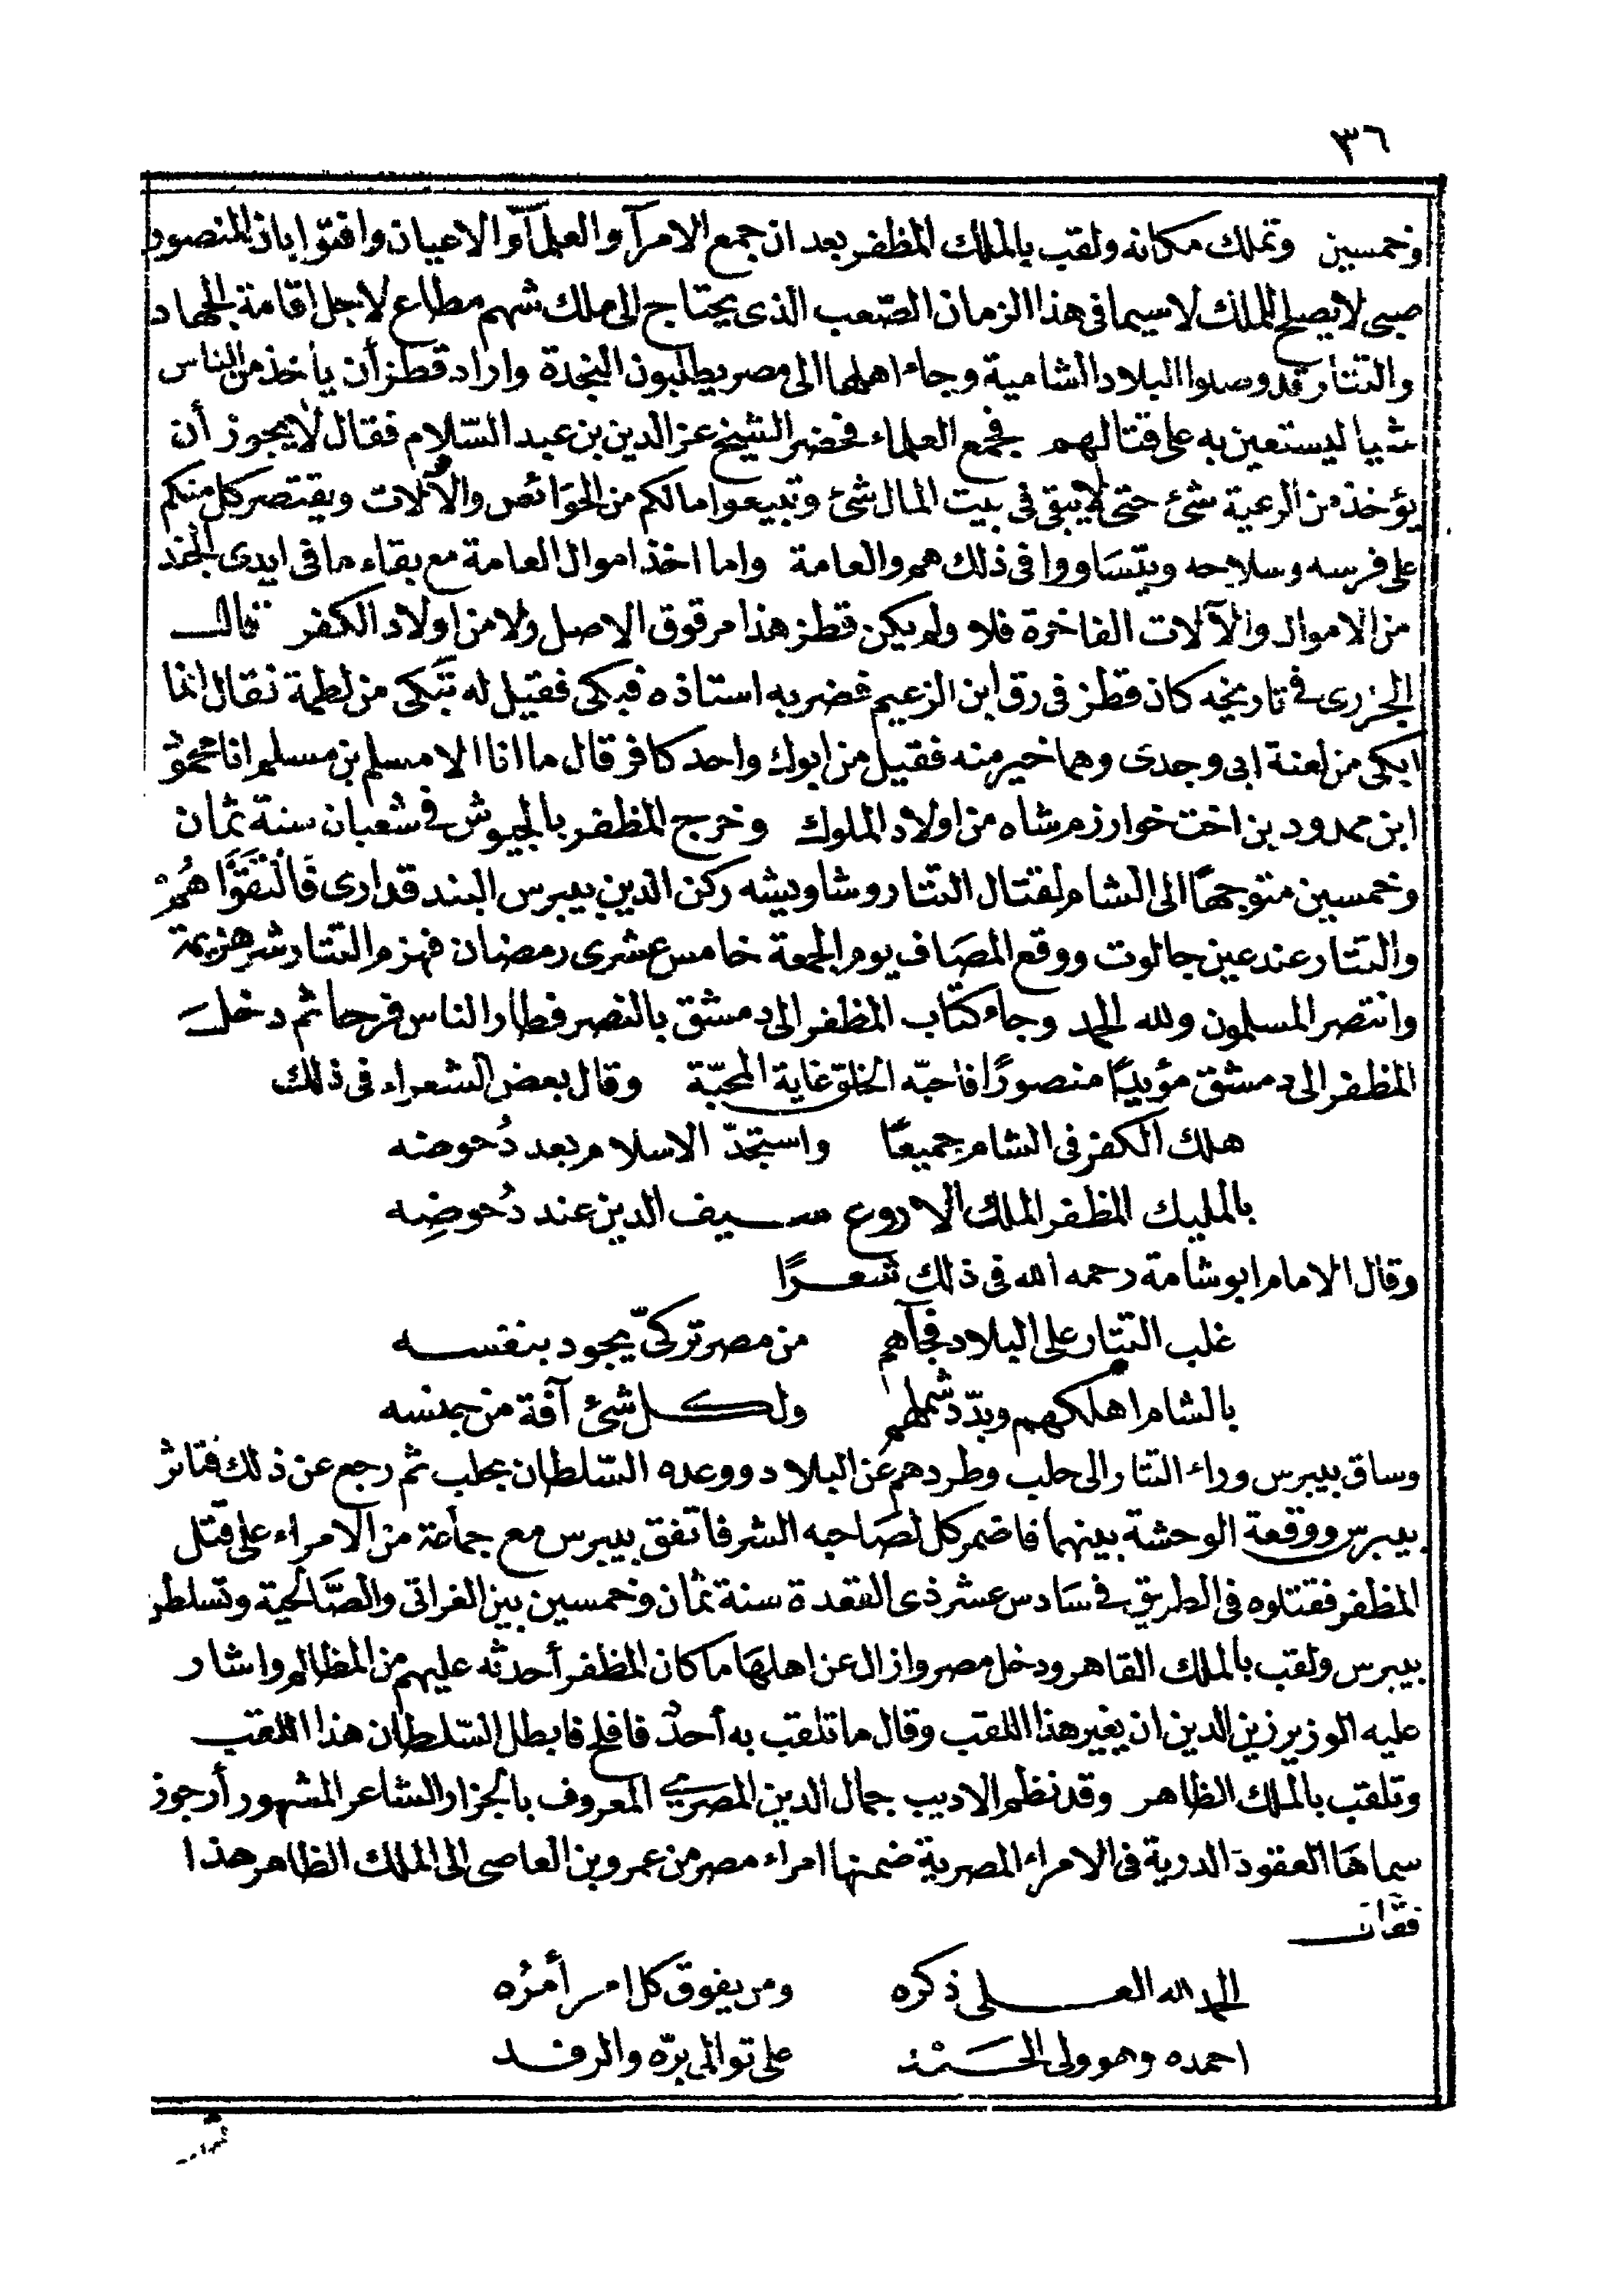 ٣٦
وخمسين وتملك مكانه ولقب بالملك المظفر بعد ان جمع الامرآ والعلمآ والاعيان وافتوا بان المنصور
صبى لا يصلح للملك لا سيما فى هذا الزمان الصّعب الذى يحتاج الى ملك شهم مطاع لاجل اقامة الجهاد
والتتار قد وصلوا البلاد الشامية وجاء اهلها الى مصر يطلبون النجدة واراد قطز أن يأخذ من الناس
شيا ليستعين به على قتالهم فجمع العلماء فحضر الشيخ عز الدين بن عبد السّلام فقال لا يجوز أن
يؤخذ من الرعية شئ حتى لا يبقى فى بيت المال شئ وتبيعوا مالكم من الحوائص والآلات ويقتصر كل منكم
على فرسه وسلاحه ويتسَاووا فى ذلك هم والعامة واما اخذ اموال العامة مع بقاء ما فى ايدى الجند
من الاموال والآلات الفاخرة فلا ولم يكن قطز هذا مرقوق الاصل ولا من اولاد الكفر قال
الجزرى فى تاريخه كان قطز فى رق ابن الزعيم فضربه استاذه فبكى فقيل له تبكى من لطمة فقال انما
ابكى من لعنة ابى وجدى وهما خير منه فقيل من ابوك واحد كافر قال ما انا الا مسلم بن مسلم انا محمود
ابن ممدود بن اخت خوارزم شاه من اولاد الملوك وخرج المظفر بالجيوش فى شعبان سنة ثمان
وخمسين متوجهًا الى الشام لقتال التتار وشاويشه ركن الدين بيبرس البندقدارى فَالْتَقَوَّا هُمْ
والتتار عند عين جالوت ووقع المصَاف يوم الجمعة خامس عشرى رمضان فهزم التتار شر هزيمة
وانتصر المسلمون ولله الحمد وجاء كتاب المظفر الى دمشق بالنصر فطار الناس فرحا ثم دخل
المظفر الى دمشق مؤيدًا منصورًا فاحبّه الخلق غاية المحبّة وقال بعض الشعراء فى ذلك
هلك الكفر فى الشام جميعًا واستجدّ الاسلام بعد دُحوضه
بالمليك المظفر الملك الاروع سيف الدين عند دُحوضِه
وقال الامام ابو شامة رحمه الله فى ذلك شعرًا
غلب التتار على البلاد فجآهم من مصر تركىّ يجود بنفسه
بالشام اهلكهم وبدّد شملهم ولكل شئ آفة من جنسه
وساق بيبرس وراء التتار الى حلب وطردهم عن البلاد ووعده السّلطان بحلب ثم رجع عن ذلك فتاثر
بيبرس ووقعة الوحشة بينهما فاضمر كل لصَاحبه الشر فاتفق بيبرس مع جمأعة من الامراء على قتل
المظفر فقتلوه فى الطريق فى سَادس عشر ذى القعدة سنة ثمان وخمسين بين الغرابى والصَّالحية وتسلطن
بيبرس ولقب بالملك القاهر ودخل مصر وازال عن اهلهَا ما كان المظفر أحدثه عليهم من المظالم واشار
عليه الوزير زين الدين ان يغير هذا اللقب وقال ما تلقب به أحدٌ فافلح فابطل السّلطان هذا اللقب
وتلقب بالملك الظاهر وقد نظم الاديب جمال الدين المصرى المعروف بالجزار الشاعر المشهور أرجوز
سماهَا العقودَ الدرية فى الامراء المصرية ضمنها امراء مصر من عمرو بن العاصى الى الملك الظاهر هذا
فقال
الحمد لله العلى ذكره ومن يفوق كل امر أمرُه
احمده وهو ولى الحَمْد على توالى برّه والرفد